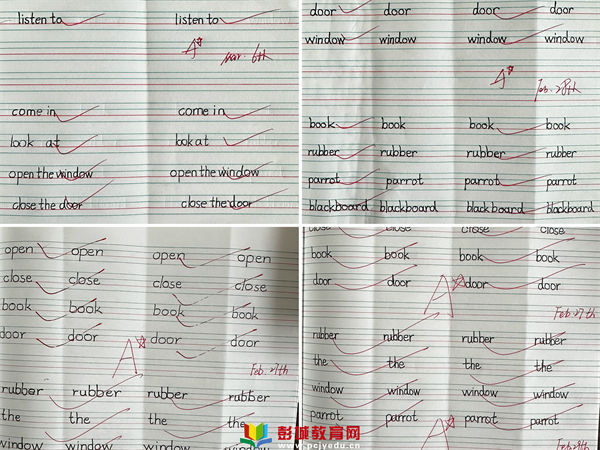 listen to listen to
A☆ Mar. 6th
come in come in
look at look at
open the window open the window
close the door close the door
door door door door
window window window window
A☆ Feb. 28th
book book book book
rubber rubber rubber rubber
parrot parrot parrot parrot
blackboard blackboard blackboard blackboard
open open open open
close close close close
book book book book
door door door door
A☆ Feb. 27th
rubber rubber rubber rubber
the the the the
window window window window
close close close close
book book book book
door door door door
A☆ Feb. 27th
rubber rubber rubber rubber
the the the the
window window window window
parrot parrot parrot parrot
A☆ Feb. 28th
彭诚教育网
www.pcjyedu.cn